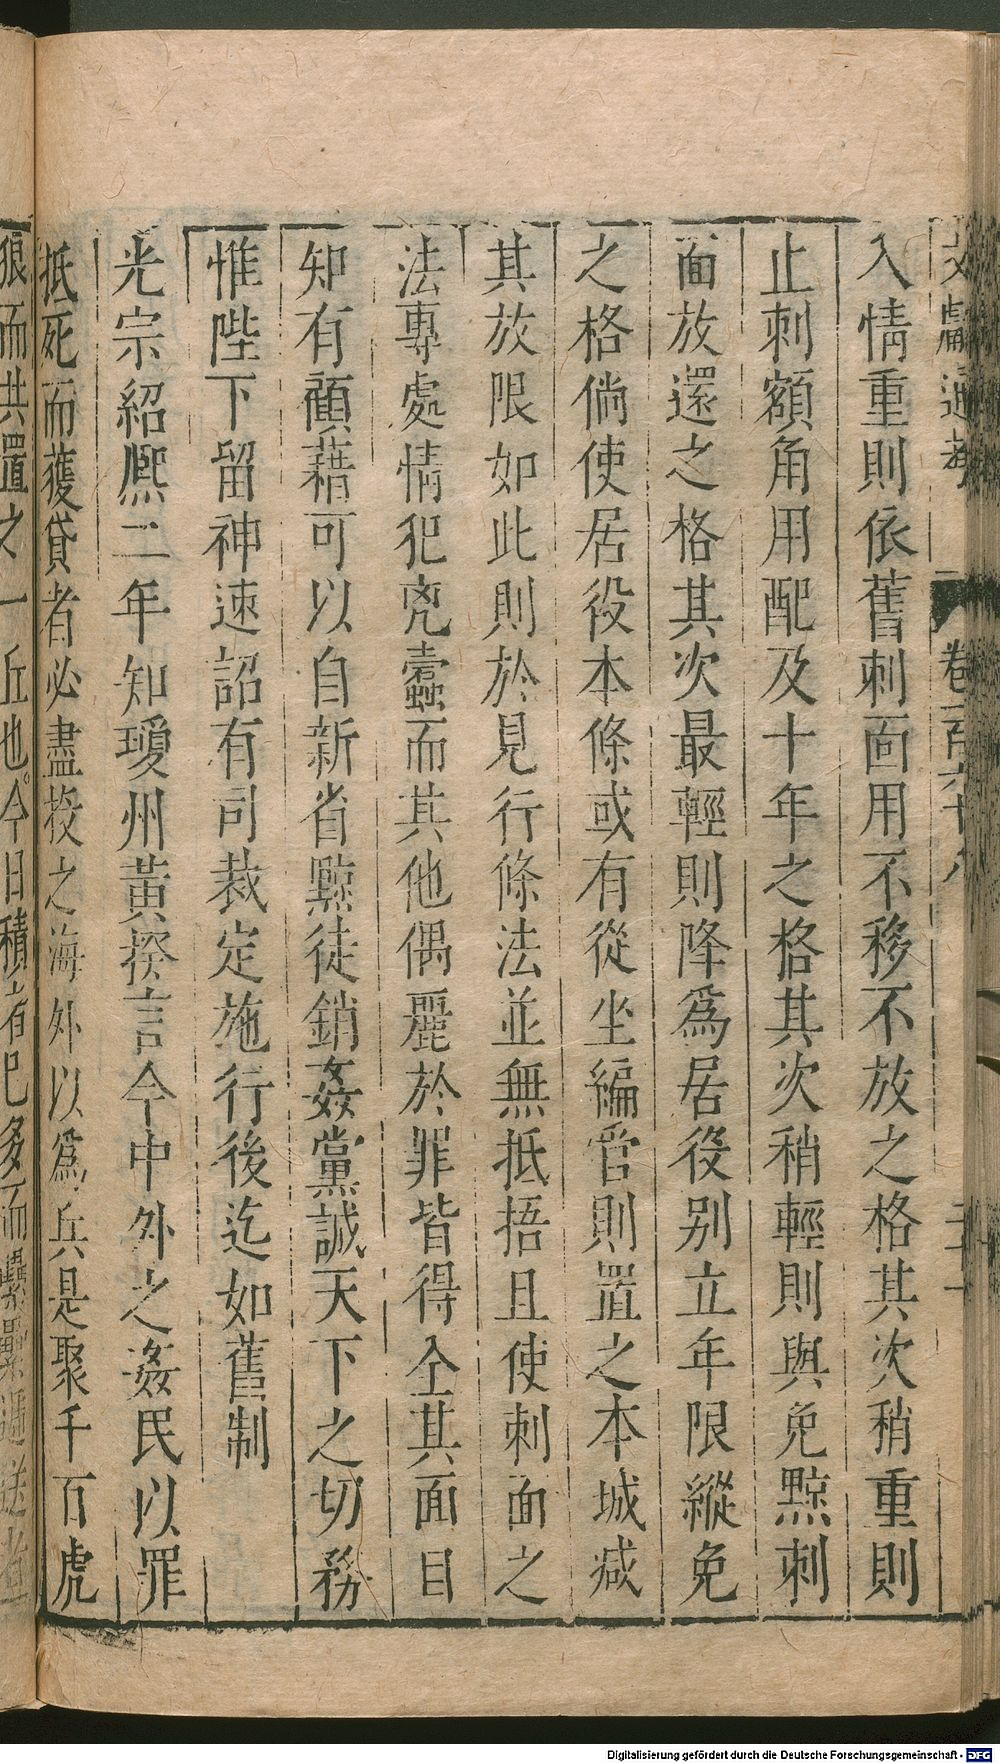 文獻通考 卷一百六十八
入情重則依舊刺面用不移不放之格其次稍重則
止刺額角用配及十年之格其次稍輕則與免黥刺
面放還之格其次最輕則降爲居役别立年限縱免
之格倘使居役本條或有從坐編管則置之本城减
其放限如此則於見行條法並無抵捂且使刺面之
法專處情犯兇蠹而其他偶麗於罪皆得全其面目
知有顧藉可以自新省黥徒銷姦黨誠天下之切務
惟陛下留神速詔有司裁定施行後迄如舊制
光宗紹熙二年知瓊州黃揆言今中外之姦民以罪
抵死而獲貸者必盡投之海外以爲兵是聚千百虎
狼而共置之一丘也今日積者已多而累累遞送者
Digitalisierung gefördert durch die Deutsche Forschungsgemeinschaft - DFG